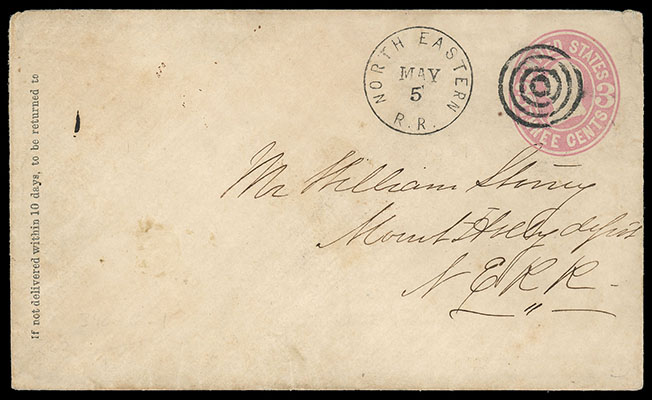 If not delivered within 10 days, to be returned to
NORTH EASTERN
MAY
5
R.R.
STATES
3
CENTS
Mr William Stoney
Mount Holly depot
N E R R